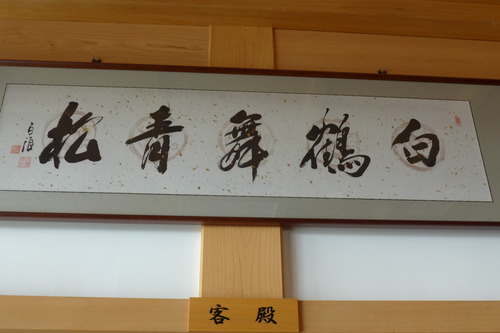 白鶴舞青松
客殿